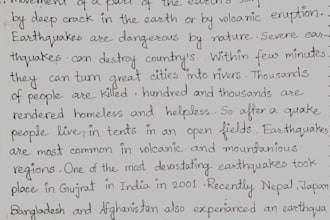 movement of a part of the earth's
by deep crack in the earth or by volcanic eruption.
Earthquakes are dangerous by nature. Severe ear-
thquakes can destroy country's. Within few minutes
they can turn great cities into rivers. Thousands
of people are killed, hundred and thousands are
rendered homeless and helpless. So after a quake
people live, in tents in an open fields. Earthquakes
are most common in volcanic and mountanious
regions. One of the most devastating earthquakes took
place in Gujrat in India in 2001. Recently Nepal, Japan
Bangladesh and Afghanistan also experianced an earthqua